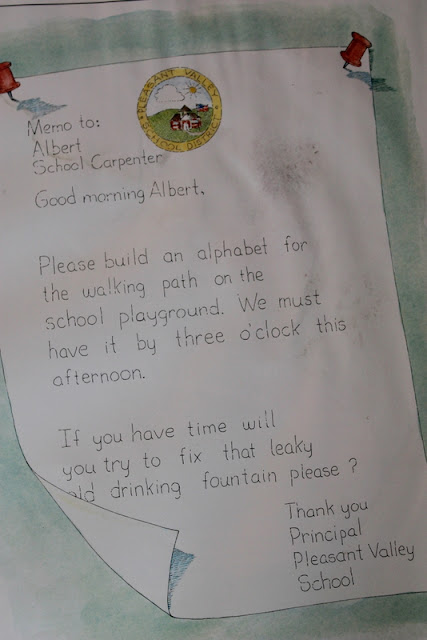 PLEASANT VALLEY
SCHOOL DISTRICT
Memo to:
Albert
School Carpenter
Good morning Albert,
Please build an alphabet for
the walking path on the
school playground. We must
have it by three o'clock this
afternoon.
If you have time will
you try to fix that leaky
old drinking fountain please ?
Thank you
Principal
Pleasant Valley
School